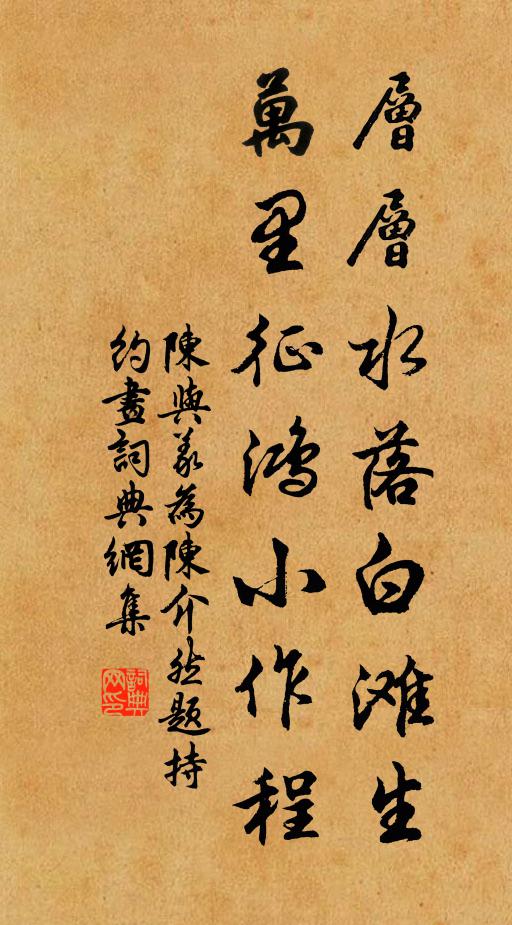 層層水落白滩生
萬里征鴻小作程
陳與義為陳介然題持
約畫詞典網集
詞典网印